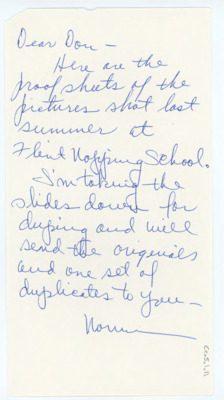 Dear Don —
Here are the
proof sheets of the
pictures shot last
summer at
Flint Hopping School.
I'm taking the
slides down for
duping and will
send the originals
and one set of
duplicates to you —